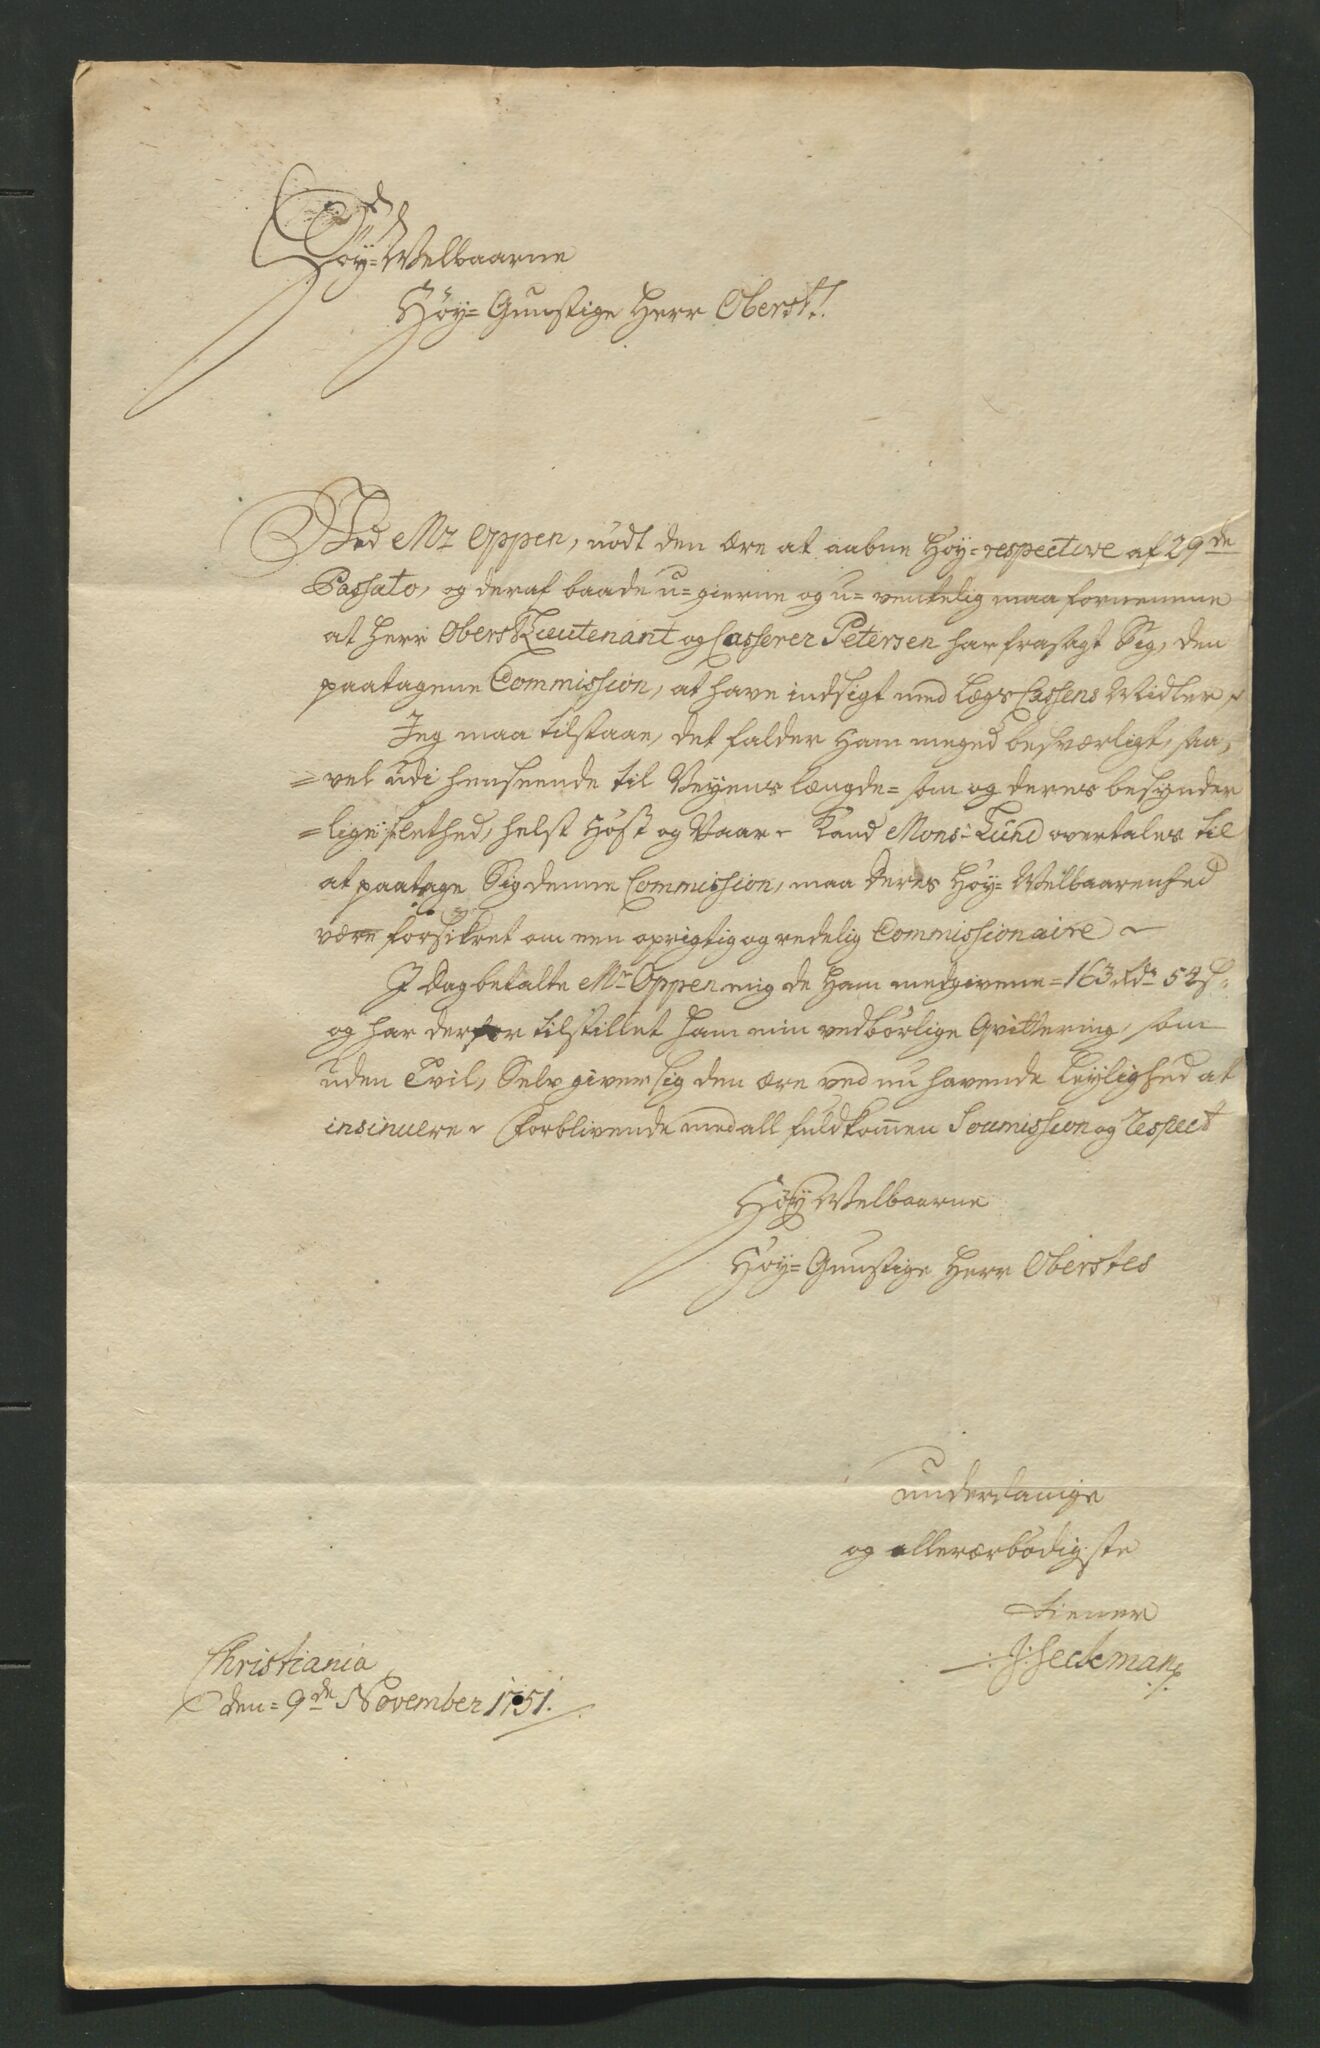 Høy-Welbaarne
Høy-Gunstige Herr Oberst!
Ved Mr Oppen, nødt den ære at aabne Høy-respective af 29de
Passato, og deraf baade u-gierne og u-ventelig maa fornemme
at Herr Oberst Lieutenant og Casserer Petersen har frasagt Sig, den
paatagene Commission, at have indsigt med Lægs Cassens Midler,
Jeg maa tilstaae, det falder Ham meged besværligt, saa,
=vel udi henseende til Veyens længde= som og deres besynder
=lige slethed, helst Høst og Vaar- Kand Monsr Lund overtales til
at paatage Sig denne Commission, maa deres Høy-Welbaarenhed
være forsikret om een oprigtig og redelig Commissionaire ~
I Dag betalte Mr Oppen mig de Ham medgivene = 163 Rdr 54 s.
og har derfor tilstillet ham min vedbørlige Qvittering, som
uden Tvil, Selv giver sig den ære ved nu havende Leylighed at
insinuere - Forblivende med all fuldkom̅en Soumission og respect
Høy Welbaarne
Høy-Gunstige Herr Oberstes
underdanige
og allerærbødigste
tiener
J: Seckman
Christiania
den= 9de November 1751.